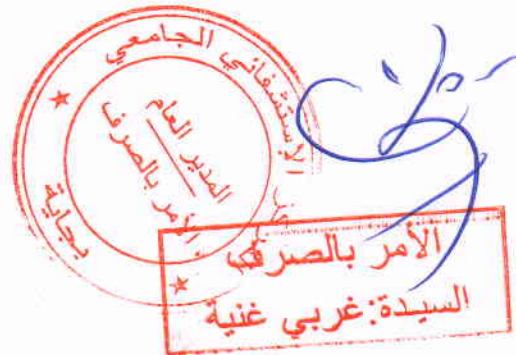 الإستشفائي الجامعي
بجاية
المدير العام
الآمر بالصرف
الأمر بالصرف
السيدة:غربي غنية